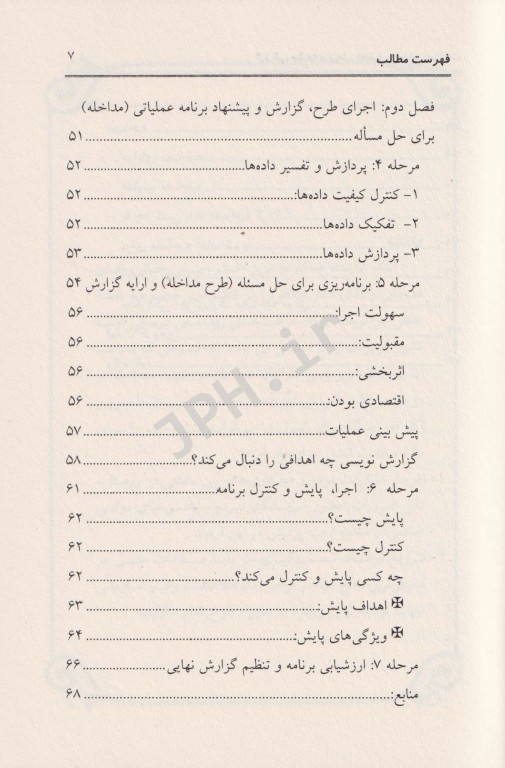 فهرست مطالب ۷
فصل دوم: اجرای طرح، گزارش و پیشنهاد برنامه عملیاتی (مداخله)
برای حل مسأله ۵۱
مرحله ۴: پردازش و تفسیر داده‌ها ۵۲
۱- کنترل کیفیت داده‌ها: ۵۲
۲- تفکیک داده‌ها ۵۲
۳- پردازش داده‌ها ۵۳
مرحله ۵: برنامه‌ریزی برای حل مسئله (طرح مداخله) و ارایه گزارش ۵۴
سهولت اجرا: ۵۶
مقبولیت: ۵۶
اثربخشی: ۵۶
اقتصادی بودن: ۵۶
پیش بینی عملیات ۵۷
گزارش نویسی چه اهدافی را دنبال می‌کند؟ ۵۸
مرحله ۶: اجرا، پایش و کنترل برنامه ۶۱
پایش چیست؟ ۶۲
کنترل چیست؟ ۶۲
چه کسی پایش و کنترل می‌کند؟ ۶۲
✠ اهداف پایش: ۶۳
✠ ویژگی‌های پایش: ۶۴
مرحله ۷: ارزشیابی برنامه و تنظیم گزارش نهایی ۶۶
منابع: ۶۸
JPH.ir